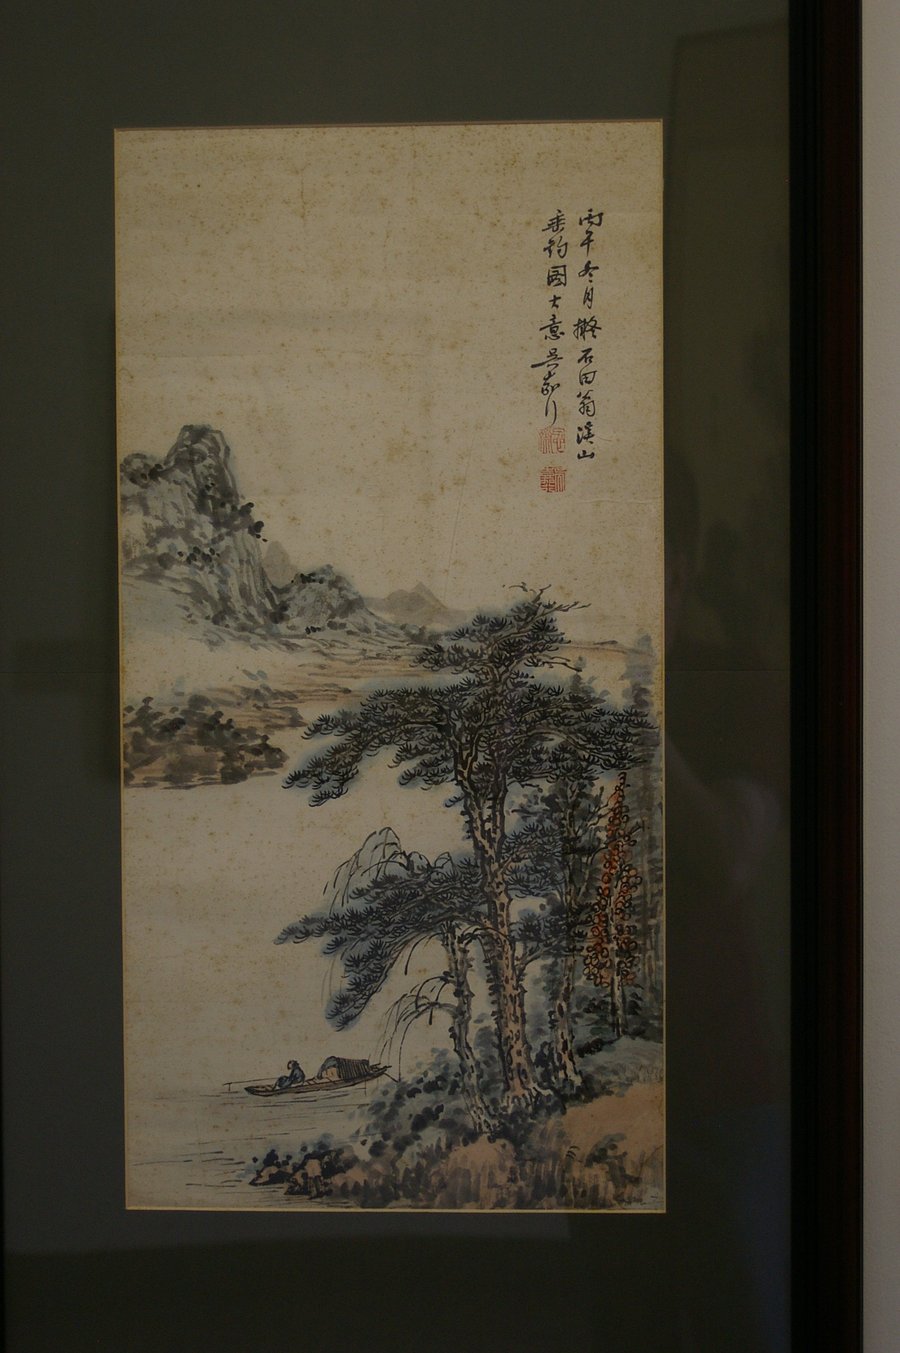 丙午冬月擬石田翁溪山
垂釣圖大意吳嘉行